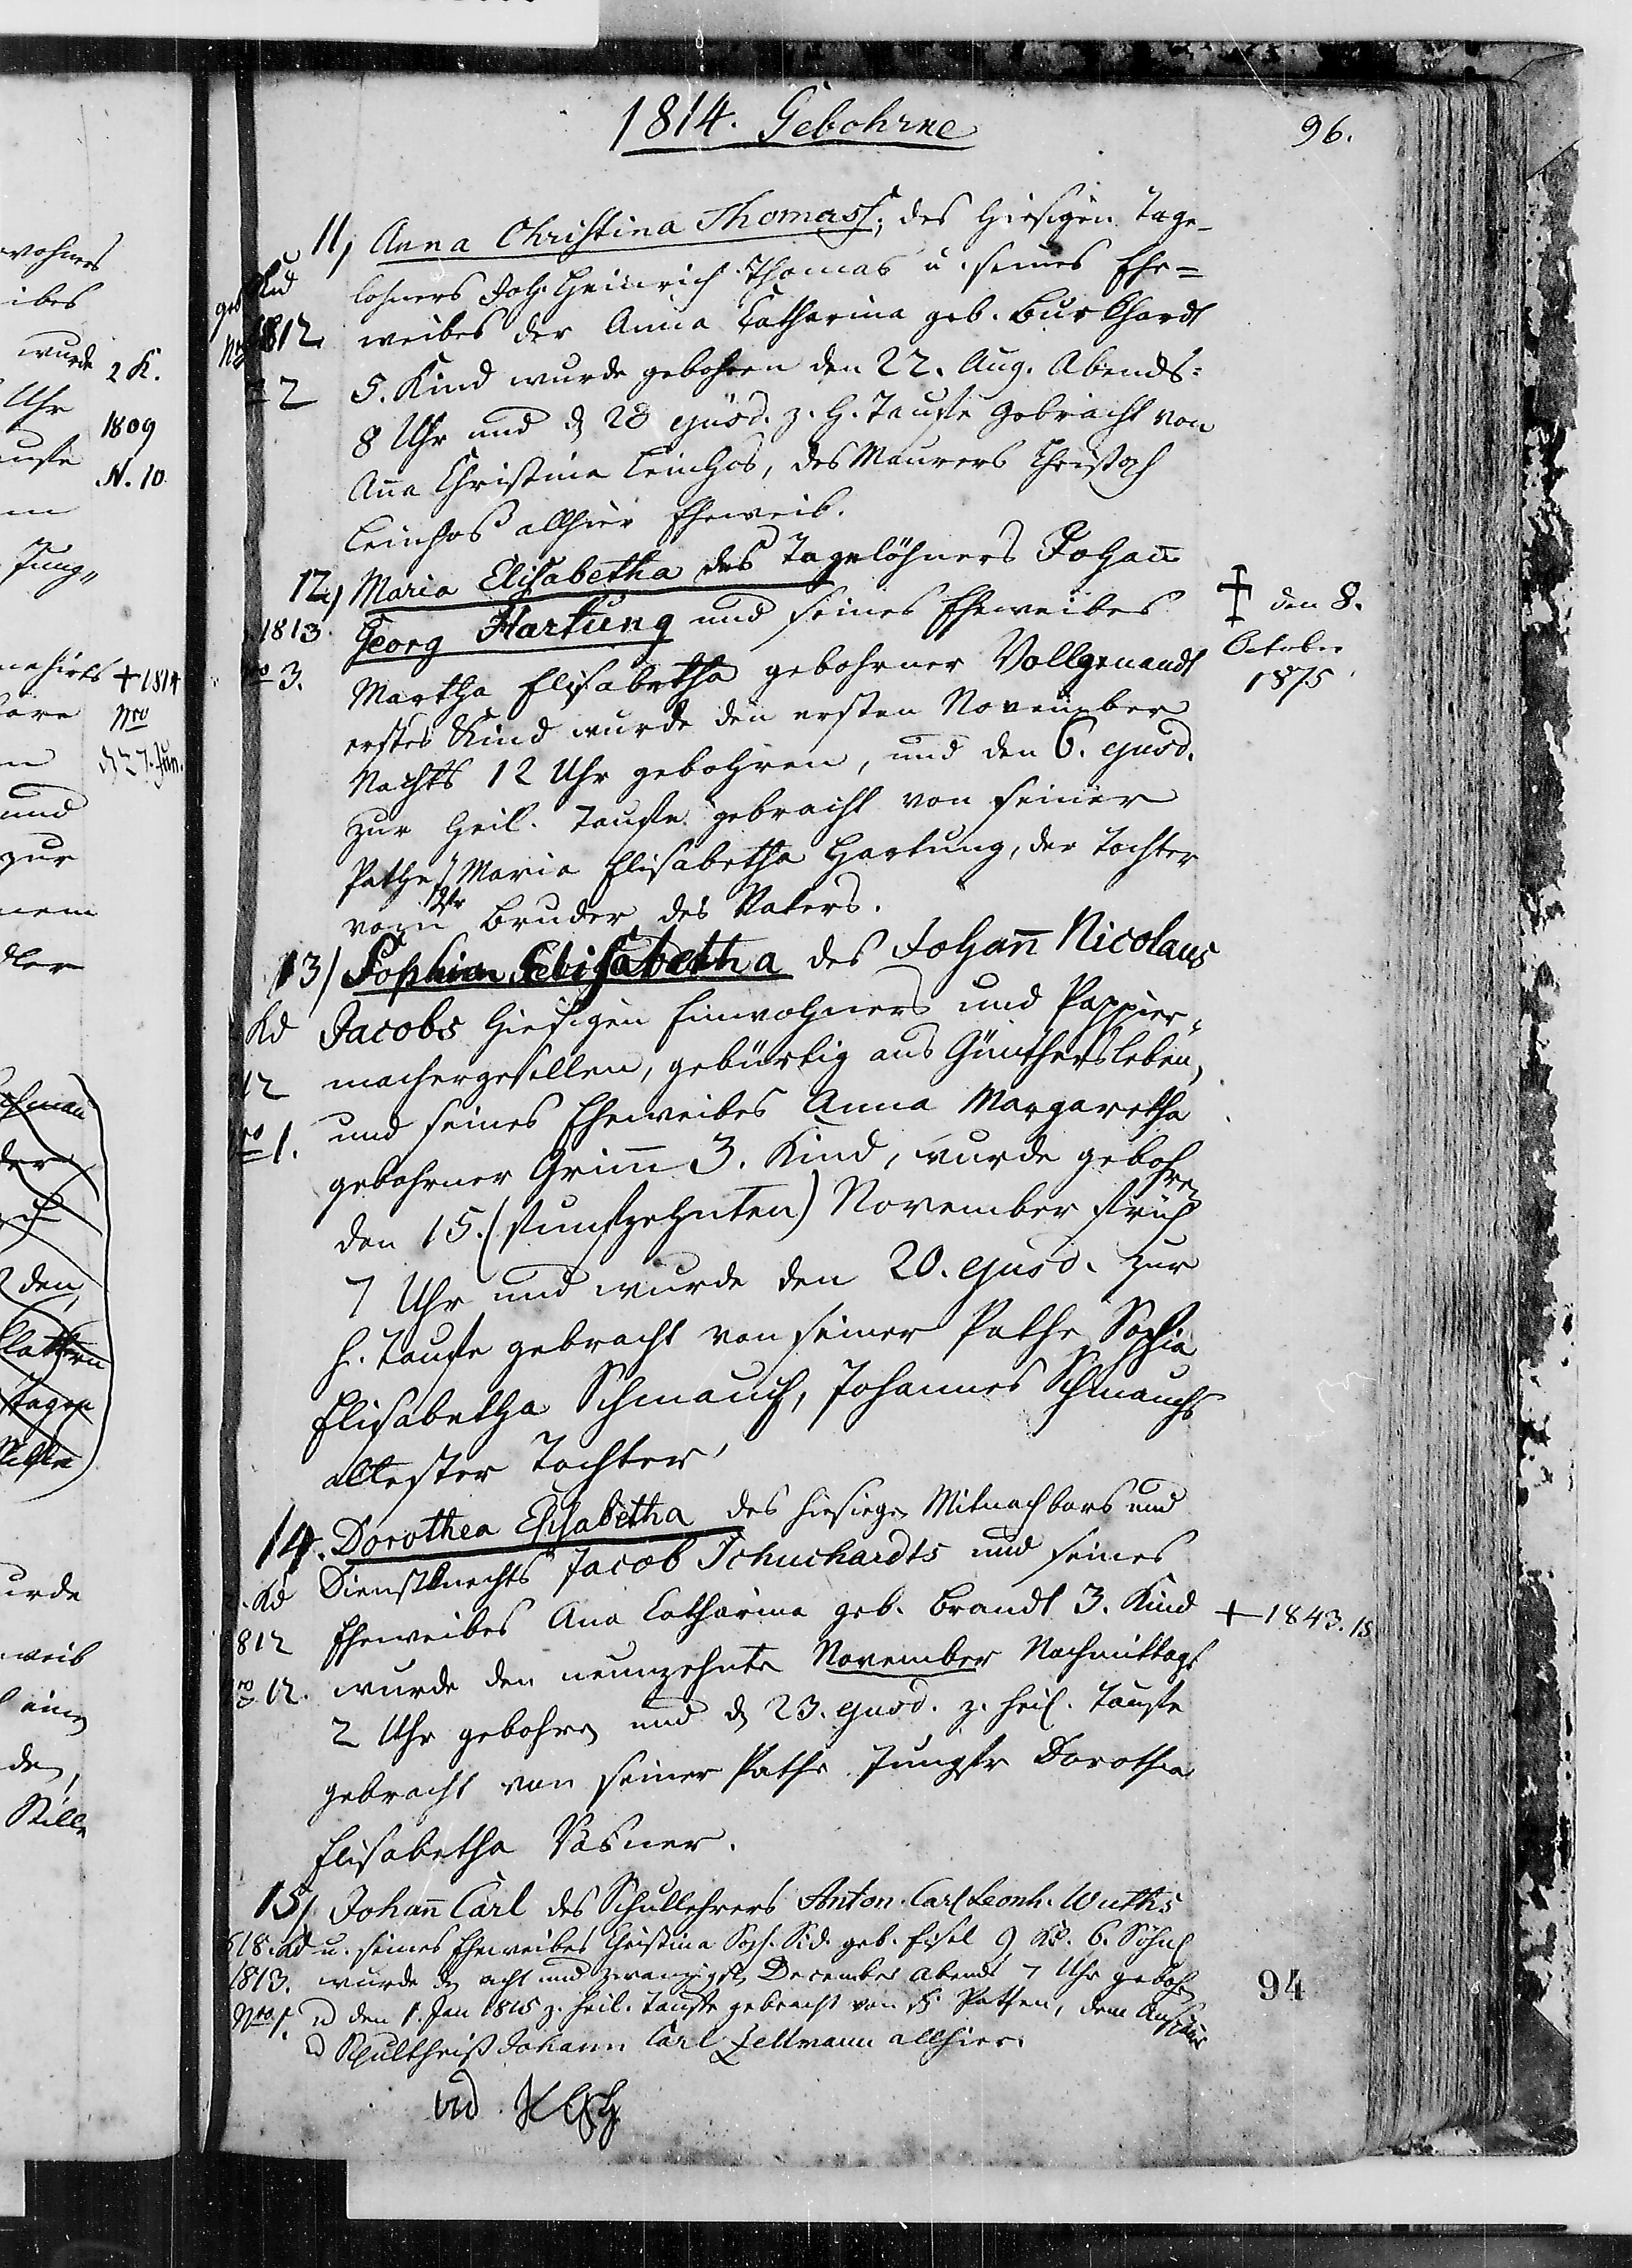 1814. Gebohrne
96.
11, Anna Christina Thomas, des hiesigen Tage-
lohners Joh. Heinrich Thomas u. seines Ehe=
weibes der Anna Catharina geb. Burkhardt
5. Kind wurde gebohren den 22. Aug. Abends=
8 Uhr und d 28 ejusd. z. H. Taufe gebracht von
Aña Christina Leinhos, des Maurers Christoph
Leinhos allhier Eheweib.
Kind
1812
2
12, Maria Elisabetha des Tagelöhners Johañ
Georg Hartung und seines Eheweibes
Martha Elisabetha gebohrner Vollgenandt
erstes Kind wurde den ersten November
Nachts 12 Uhr gebohren, und den 6. ejusd.
zur heil. Taufe gebracht von seiner
Pathe Maria Elisabetha Hartung, der Tochter
vom Bruder des Vaters.
1813
3.
† den 8.
October
1875
13) Sophia Elisabetha des Johañ Nicolaus
Jacobs hiesigen Einwohners und Pappier-
machergesellen, gebürtig aus Günthersleben,
und seines Eheweibes Anna Margaretha
gebohrner Grimm 3. Kind, wurde gebohren
den 15. (funfzehnten) November früh
7 Uhr und wurde den 20. ejusd. zur
h. Taufe gebracht von seiner Pathe Sophia
Elisabetha Schmauch, Johannes Schmauchs
altester Tochter
Kd
12
1.
14. Dorothea Elisabetha des hiesigen Mitnachbars und
Dienstknechts Jacob Schuchardts und seines
Eheweibes Aña Catharina geb. Brandt 3. Kind
wurde den neunzehnten November Nachmittags
2 Uhr gebohren und d 23. ejusd. z. heil. Taufe
gebracht von seiner Pathe Jungfr Dorothea
Elisabetha
Kd
812
12.
† 1843.
15, Johañ Carl des Schullehrers Anton Carl Leonh. Wuths
u. seines Eheweibes Christina Soph. Sid. geb. Eisel 9 Kd. 6. Söhnl
wurde den acht und zwanzigsten December abends 7 Uhr gebohren
u den 1. Jan 1815 z. heil. Taufe gebracht von Pathen, dem
u Schultheiß Johann Carl Zellmann allhier.
Kd
1813.
Nro 1.
94
2 K.
1809
N. 10
† 1814
Nro
d 27. Jun.
wurde
Uhr
und
zur